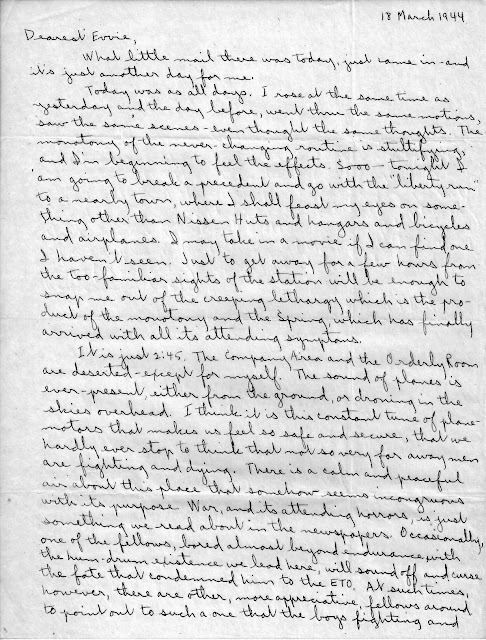 18 March 1944
Dearest Evvie,
What little mail there was today, just came in - and
it's just another day for me.
Today was as all days. I rose at the same time as
yesterday and the day before, went thru the same motions,
saw the same scenes - even thought the same thoughts. The
monotony of the never-changing routine is stultifying,
and I'm beginning to feel the effects. Sooo - tonight I
am going to break a precedent and go with the "liberty run"
to a nearby town, where I shall feast my eyes on some-
thing other than Nissen Huts and hangars and bicycles
and airplanes. I may take in a movie if I can find one
I haven't seen. Just to get away for a few hours from
the too-familiar sights of the station will be enough to
snap me out of the creeping lethargy which is the pro-
duct of the monotony and the Spring, which has finally
arrived with all its attending symptoms.
It is just 2:45. The Company Area and the Orderly Room
are deserted - except for myself. The sound of planes is
ever-present, either from the ground, or droning in the
skies overhead. I think it is this constant tune of plane-
motors that makes us feel so safe and secure, that we
hardly ever stop to think that not so very far away men
are fighting and dying. There is a calm and peaceful
air about this place that somehow seems incongruous
with its purpose. War, and its attending horrors, is just
something we read about in the newspapers. Occasionally,
one of the fellows, bored almost beyond endurance with
the hum-drum existence we lead here, will sound off and curse
the fate that condemned him to the ETO. At such times,
however, there are other, more appreciative, fellows around
to point out to such a one that the boys fighting and